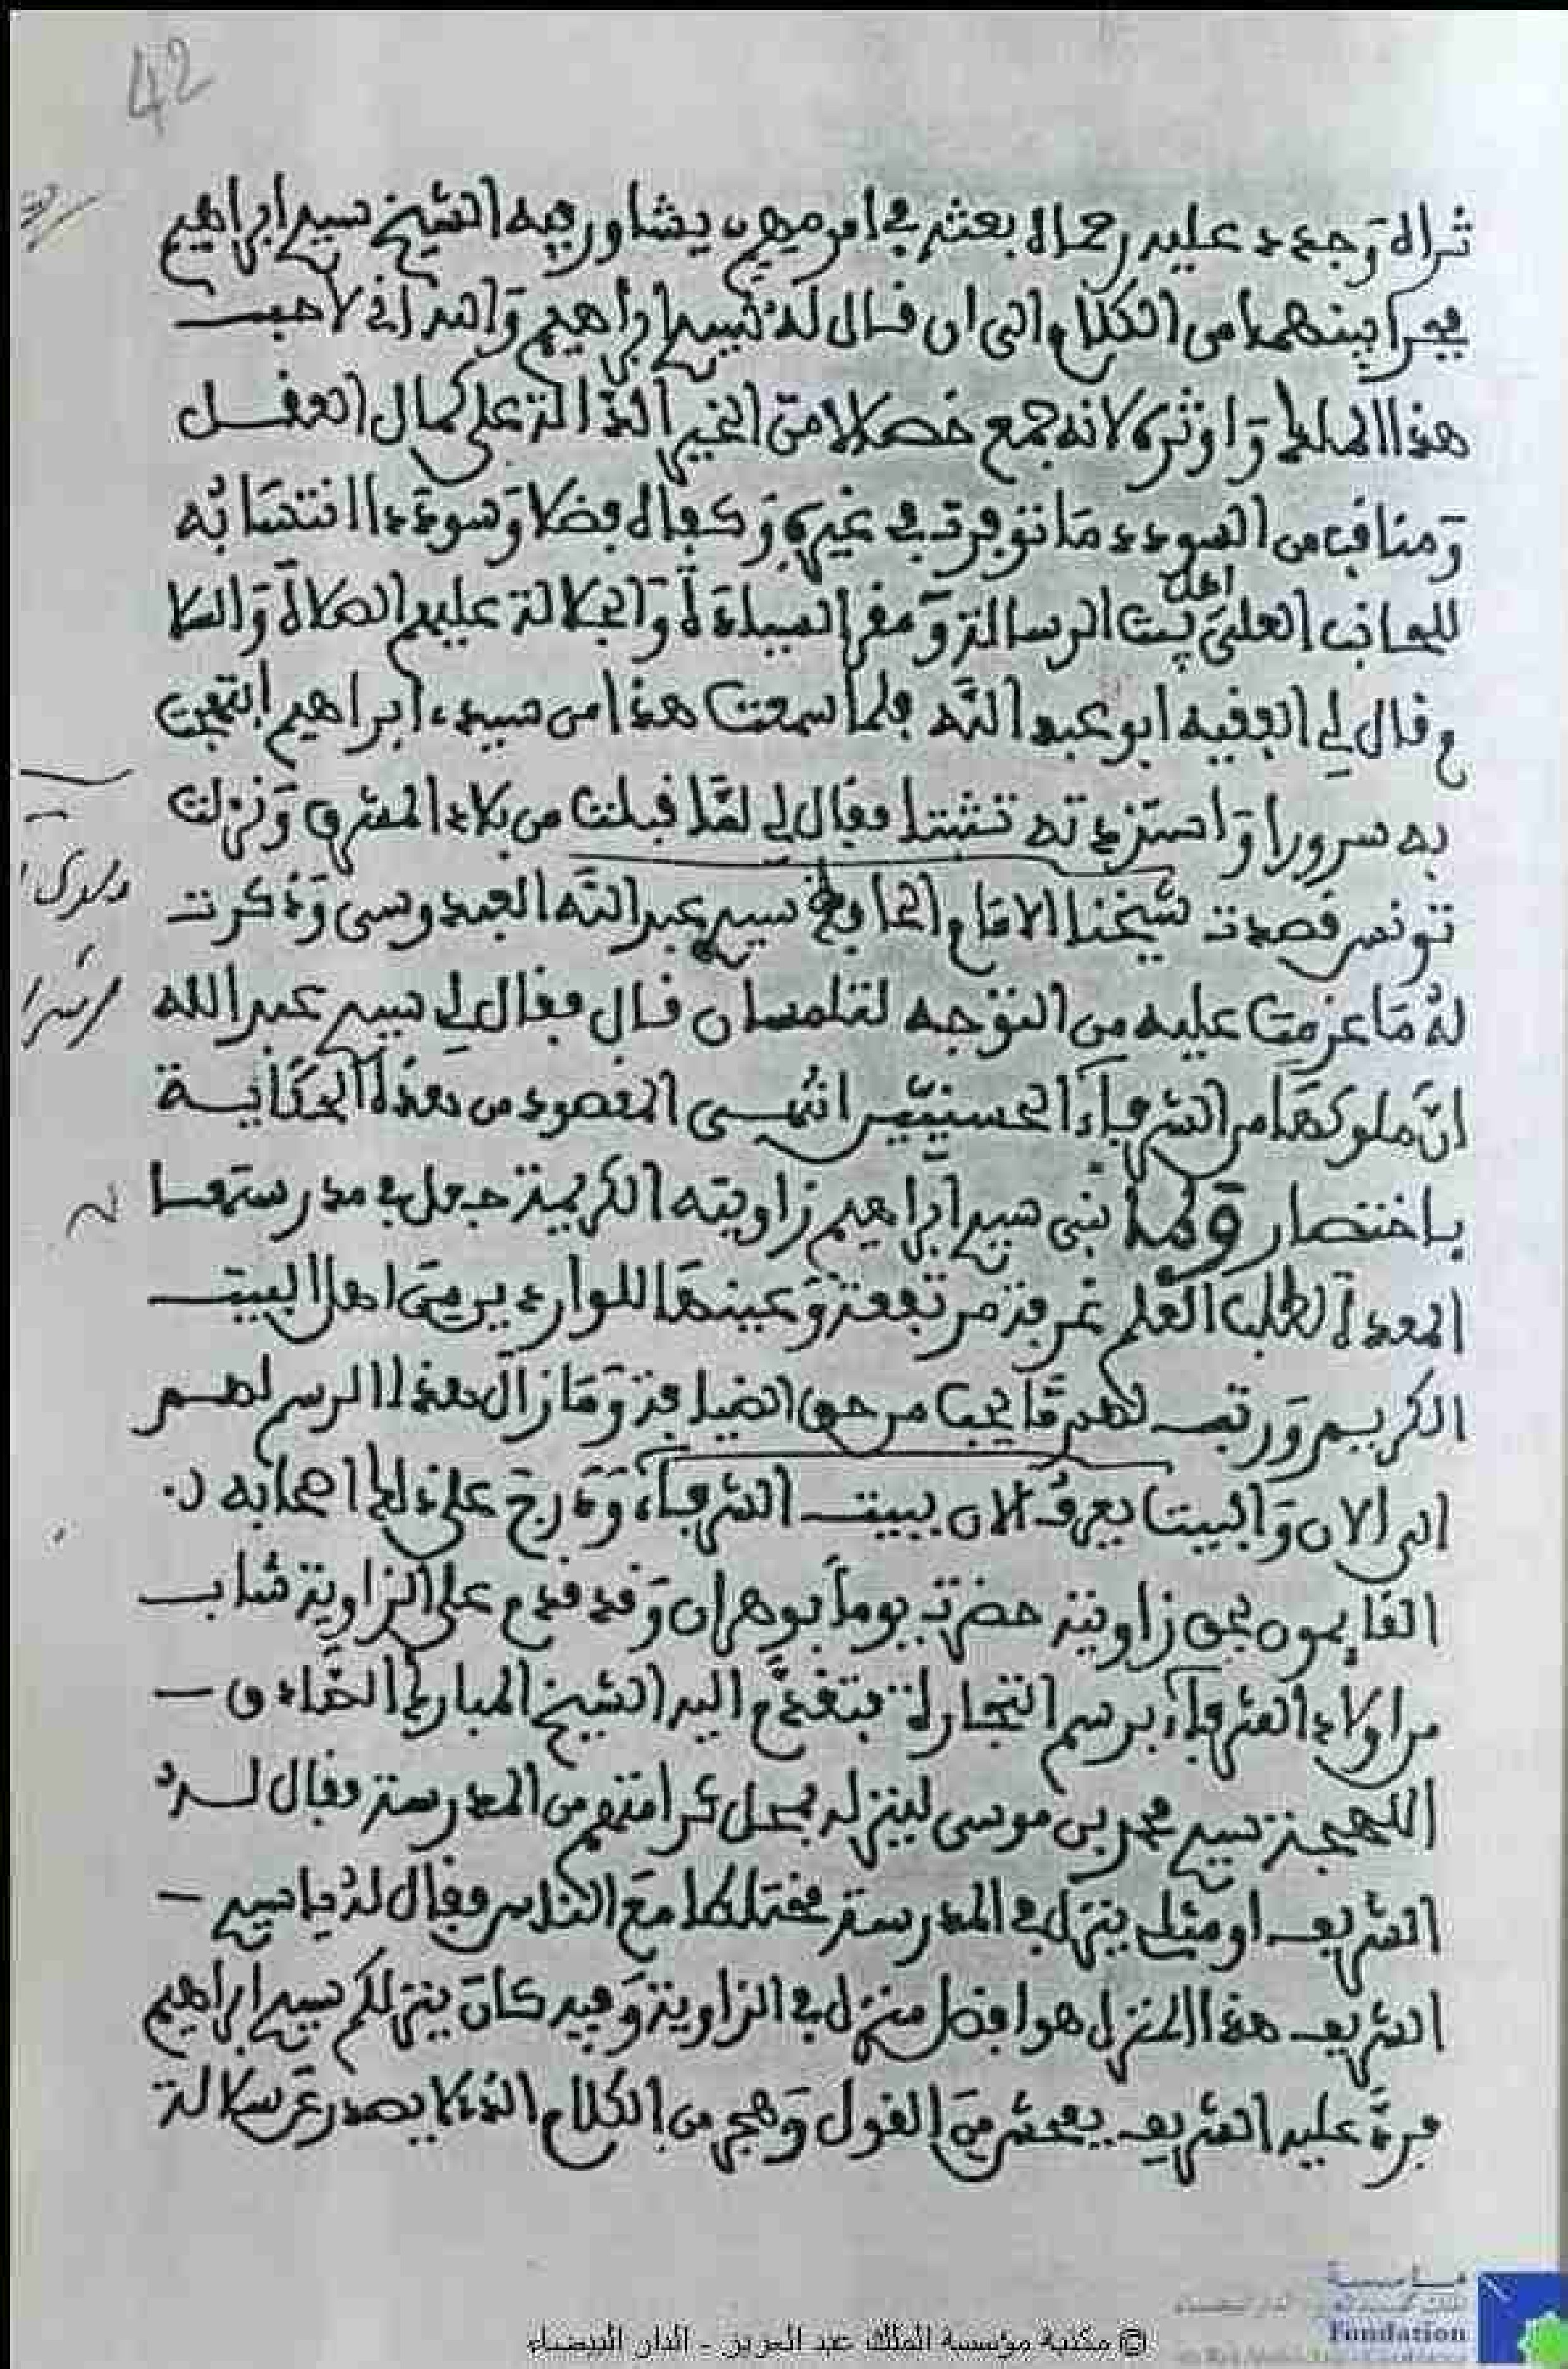 42
ثراه وجدد عليه رحماه بعثه في امر مهم يشاور فيه الشيخ سيدي ابراهيم
فجرا بينهما من الكلام الى ان قال له سيدي ابراهيم والله اني لاحب
هذا الملك واوثره لانه جمع خصالا من الخير الدالة على كمال العقل
ومناقب من السودد ما توفرت في غيره وكفاه فضلا وسوددا انتسابه
للجانب العلي اهل بيت الرسالة ومقر السيادة والجلالة عليهم الصلاة والسلا
وقال لي الفقيه ابو عبد الله فلما سمعت هذا من سيدي ابراهيم ابتهجت
به سرورا واستزدته تثبتا فقال لي لما قبلت من بلاد المشرق ونزلت
تونس قصدت شيخنا الامام الحافظ سيدي عبد الله العبدوسي وذكرت
له ما عزمت عليه من التوجه لتلمسان قال فقال لي سيدي عبد الله
ان ملوكها من الشرفاء الحسنيين انتهى المقصود من هذه الحكاية
باختصار ولما بنى سيدي ابراهيم زاويته الكريمة جعل في مدرستها
المعدة لطلب العلم غرفة مرتفعة وعينها للواردين من اهل البيت
الكريم ورتب لهم ما يجب من حق الضيافة وما زال هذا الرسم لهم
الى الان والبيت يعرف الان ببيت الشرفاء ودرج على ذلك اصحابه
القايمون بحق زاويته حضرت يوما بوهران وقد قدم على الزاوية شاب
من اولاد الشرفاء برسم التجارة فتقدم اليه الشيخ المبارك الصادق
اللهجة سيدي محمد بن موسى لينزله بمحل كرامتهم من المدرسة فقال له
الشريف او مثلي ينزل في المدرسة مختلطا مع الناس فقال له يا سيدي
الشريف هذا المنزل هو افضل منزل في الزاوية وفيه كان ينزلكم سيدي ابراهيم
فرد عليه الشريف بفحش من القول وهجر من الكلام الذي لا يصدر عن سلالة
Fondation
© مكتبة مؤسسة الملك عبد العزيز - الدار البيضاء